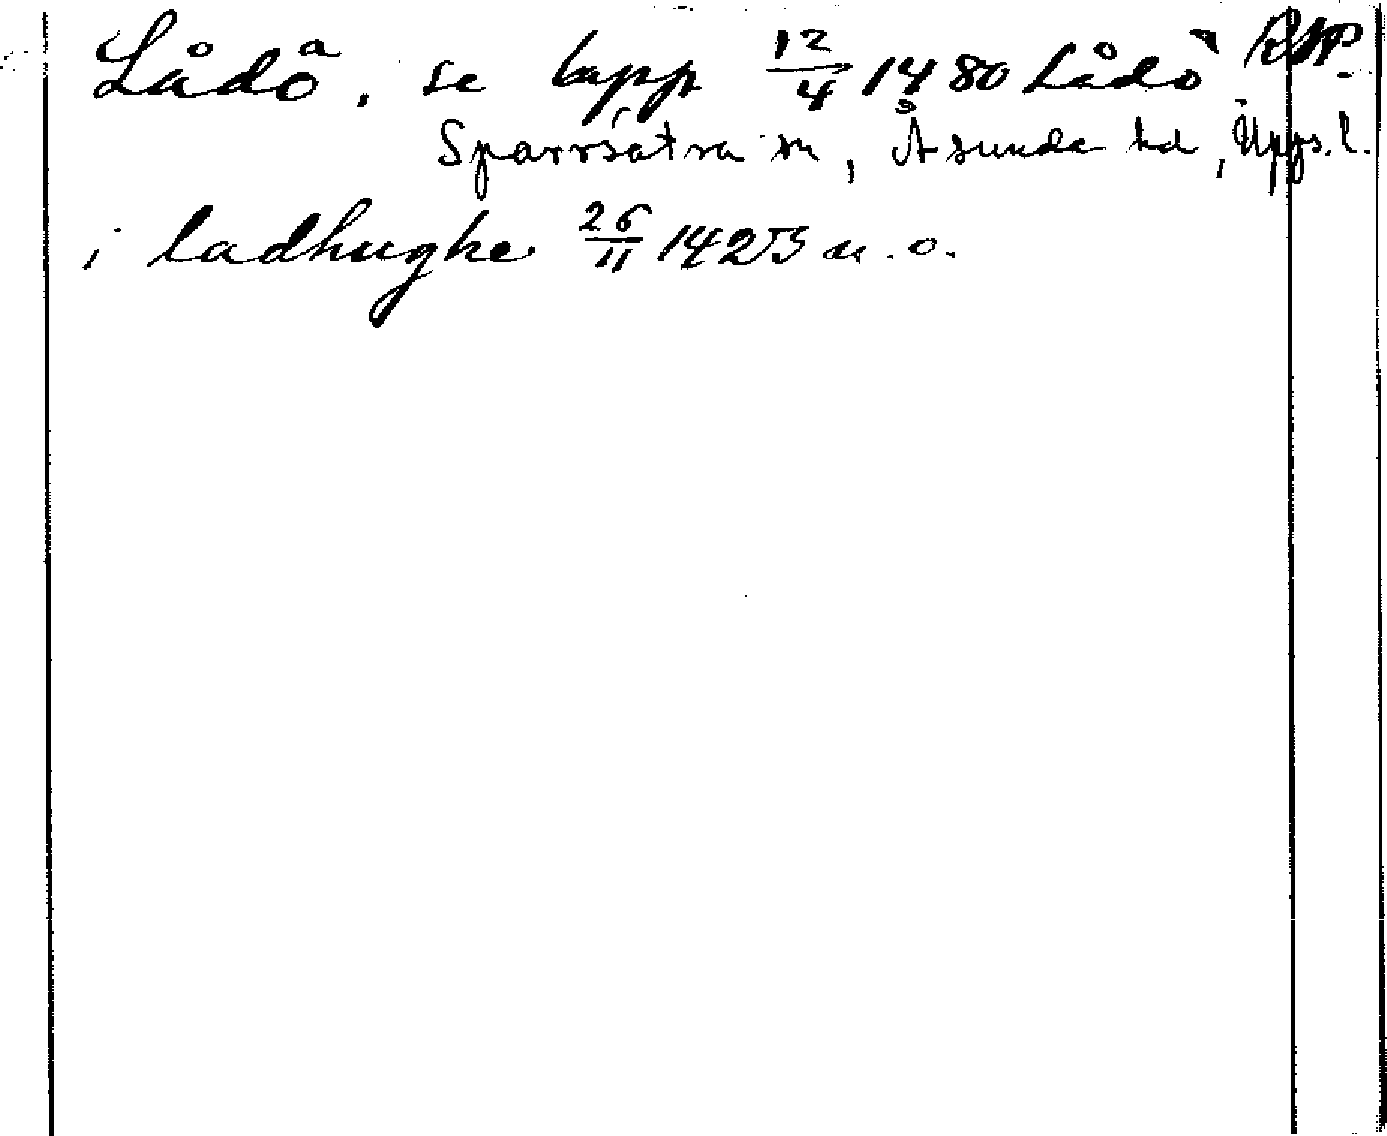 Lådö a, se lapp 12/4 1480 Lådö RAP.
Sparrsätra sn, Åsunda hd, Upps. l.
i ladhughe 26/11 1425 u. o.